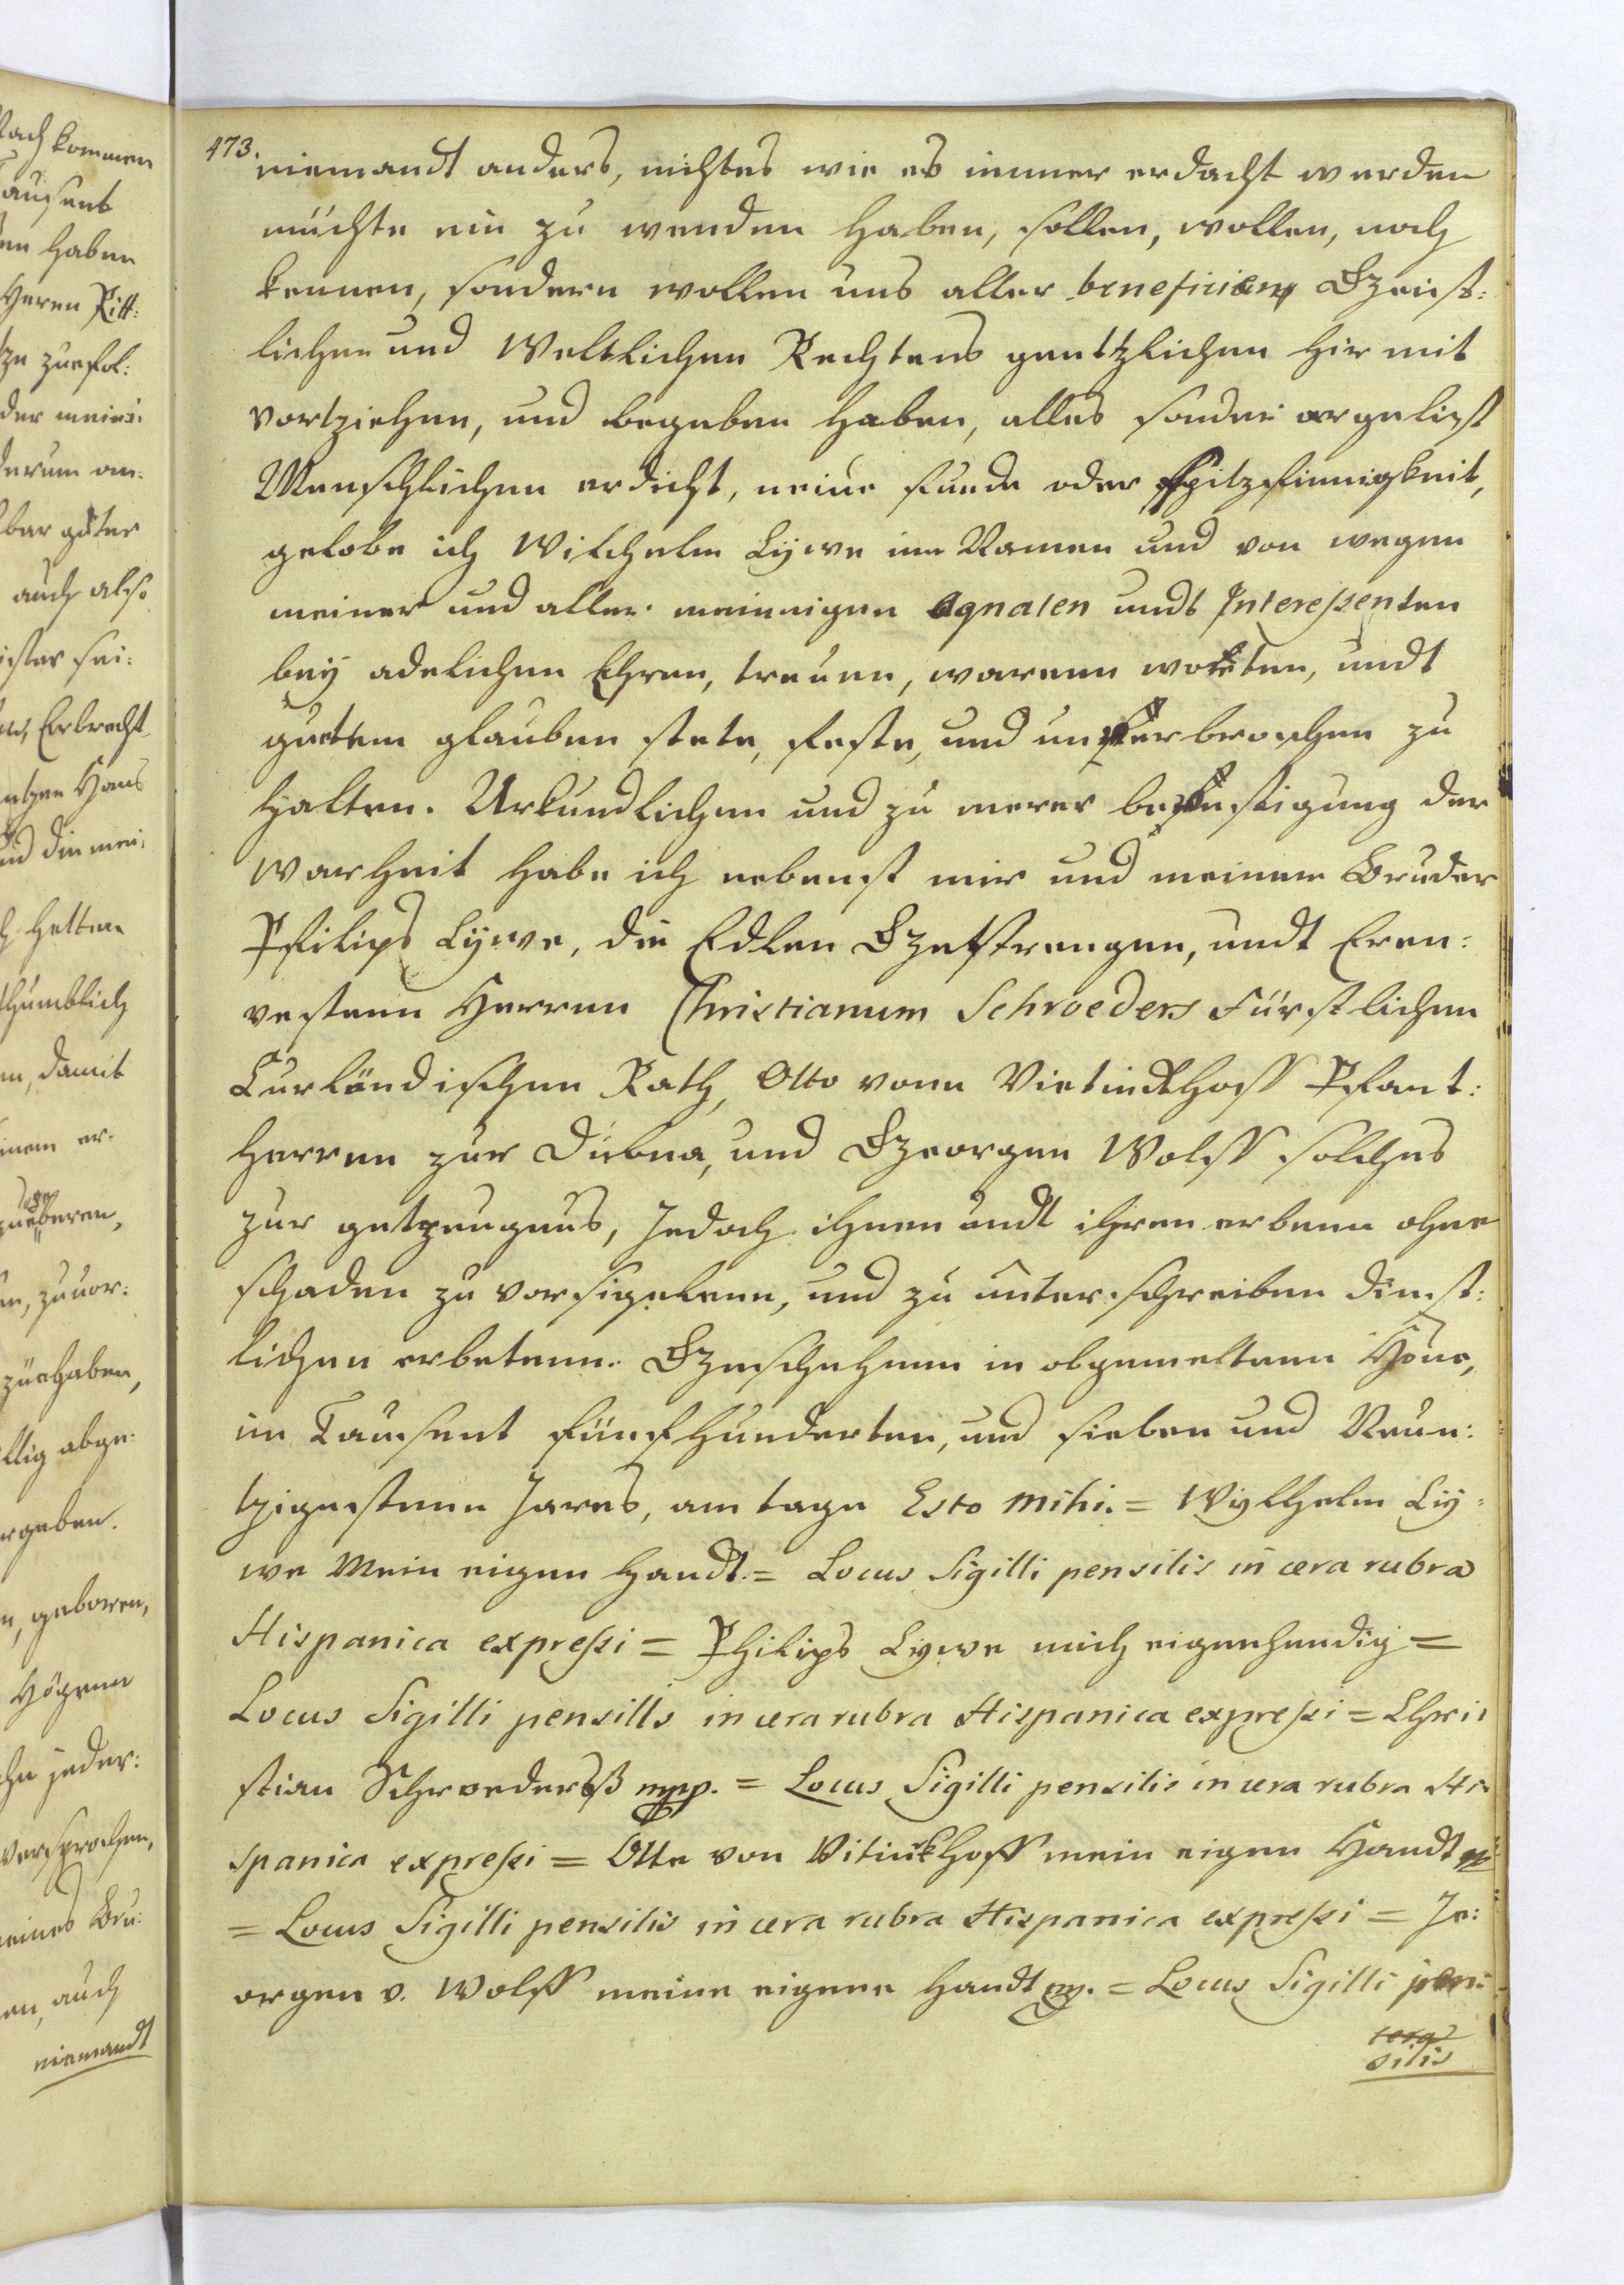 473. niemandt anders, nichtes wie es immer erdacht werden
müchte ein zu wenden haben, sollen, wollen, noch
kennen, sondern wollen uns aller beneficien Gzeist:
lichen und Weltlichen Rechtens gentzlichen hir mit
vortziehen, und begeben haben, alles sonder argelist
Menschlichen erdicht, neüe funde oder spitzfinnigkeit,
gelobe ich Wilchelm Lÿwe im Namen und von wegen
meiner und aller meinnigen Agnaten undt Interessenten
beÿ adelichen Ehren, treuen, warenn worten, undt
guttem glauben stete, feste, und unzerbrochen zu
halten. Urkundlichen und zu merer befestigung der
Warheit habe ich nebenst mir und meinem Bruder
Philips Lÿwe, die Edlen Gzestrengen, undt Eren:
vestenn Herren Christianum Schroeders Fürstlichen
Curländischen Rath, Otto vonn Vietinckhoff Pfant:
herren zur Dubna, und Gzeorgen Wolff solches
zur getzeugnus, Jedoch ihnen undt ihren erbenn ohne
schaden zu vorsigelenn, und zu unterschreiben dinst:
lichen erbetenn. Gzeschehenn in obgemeltenn Höue,
im Tausent fünfhunderten, und sieben und Neun:
tzigestenn Jares, am tage Esto mihi. = Wÿlhelm Lÿ:
we Mein eigen handt. = Locus Sigilli pensilis in cera rubra
Hispanica expressi = Philips Lÿwe mich eigenhendig =
Locus Sigilli pensilis in cera rubra Hispanica expressi = Chri:
stian Schroeders mpp. = Locus Sigilli pensilis in cera rubra Hi:
spanica expressi = Otte von Vitinckhoff mein eigen Handt
= Locus Sigilli pensilis in cera rubra Hispanica expressi = Je:
orgen v. Wolff meine eigene handt mp. = Locus Sigilli pen:
silis
niemandt